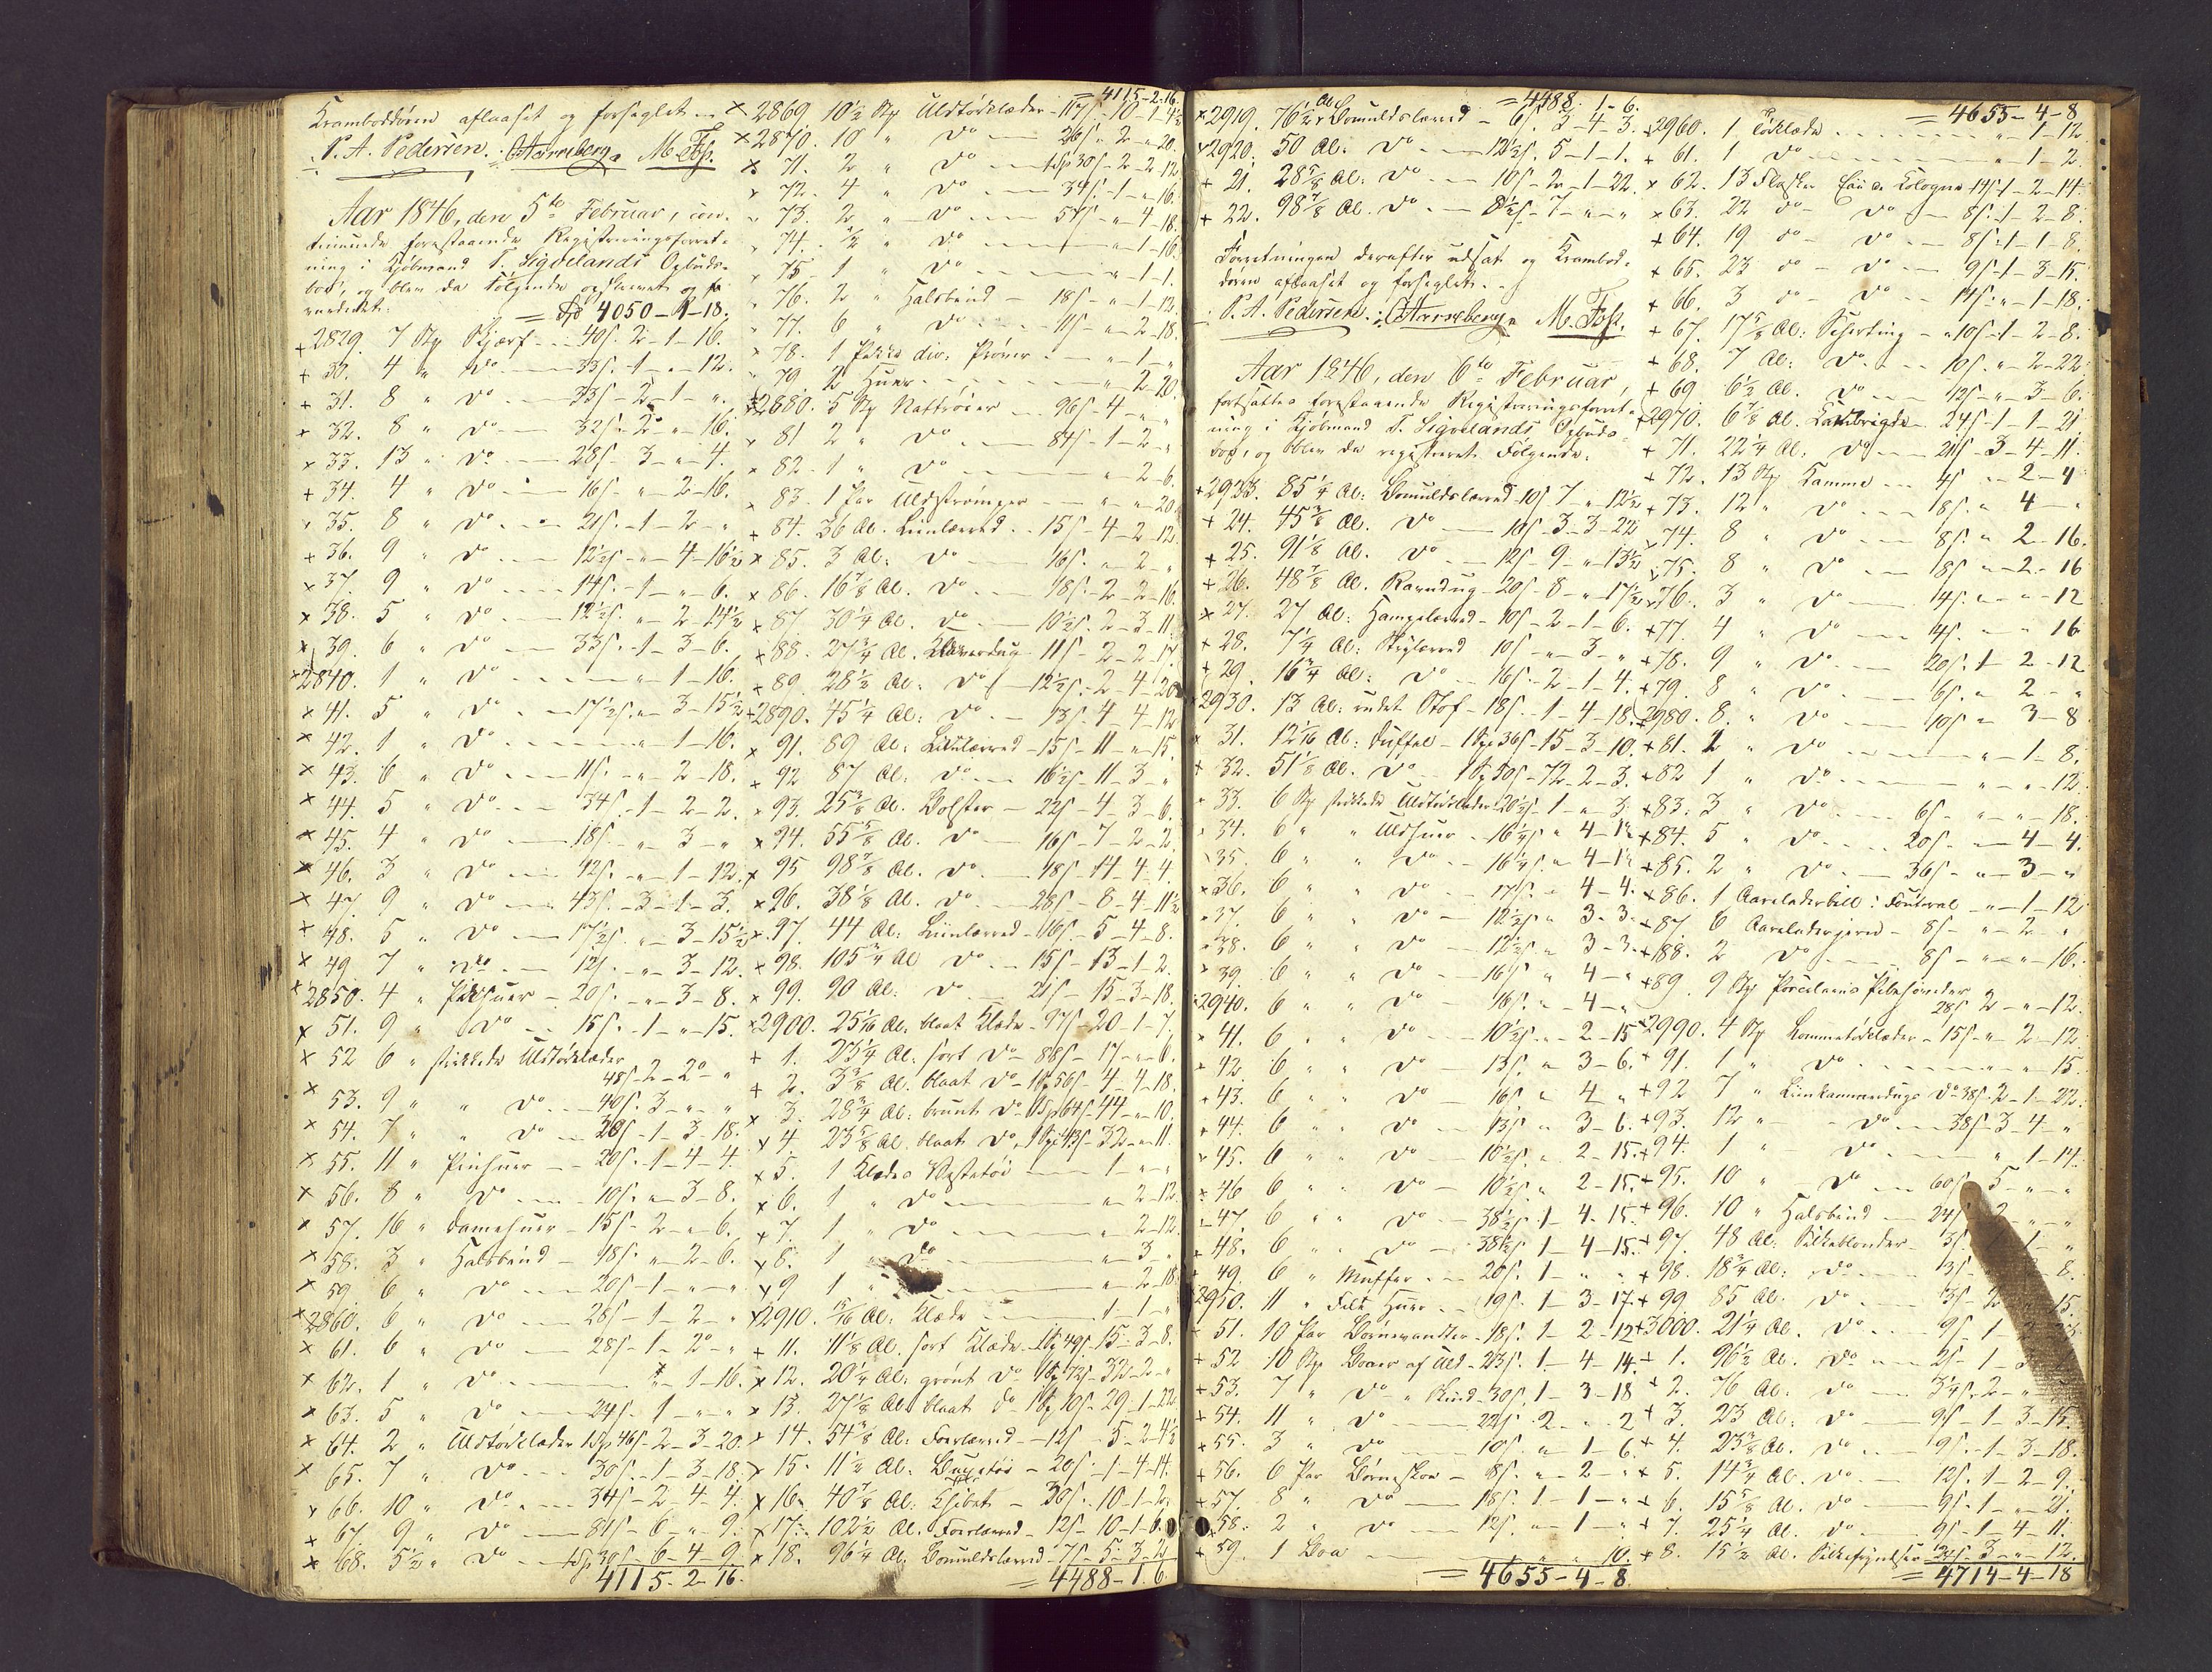 Kramboddøren aflaaset og forseglet. –
P. A. Pedersen. M. Foss.
Aar 1846, den 5te Februar, con-
tinuerede forestaaende Registreringsforret-
ning i Kjøbmand T. Sigvelands Opbuds-
boe, og blev da Følgende opskrevet og
vurderet:
= Spd 4050-4-18.
+ 2829. 7 Stk 40s. 2-1-16.
+ 30. 4 " Do 33s. 1-"-12.
+ 31. 8 " Do 33s. 2-1-".
+ 32. 8 " Do 32s. 2-"-16.
× 33. 13 " Do 28s. 3-"-4.
+ 34. 4 " Do 16s. "-2-16.
× 35. 8 " Do 21s. 1-2-"
+ 36. 9 " Do 12½s. "-4-16½
× 37. 9 " Do 14s. 1-"-6.
× 38. 5 " Do 12½s. "-2-14½
× 39. 6 " Do 33s. 1-3-6.
× 2840. 1 " Do "-1-16.
× 41. 5 " Do 17½s. "-3-15½
× 42. 1 " Do "-1-16.
× 43. 6 " Do 11s. "-2-18.
× 44. 5 " Do 34s. 1-2-2.
× 45. 4 " Do 18s. "-3-"
× 46. 3 " Do 12s. "-1-12.
× 47. 9 " Do 43s. 3-1-3.
+ 48. 5 " Do 17½s. "-3-15½
× 49. 7 " Do 12s. "-3-12.
× 2850. 4 " 20s. "-3-8.
× 51. 9 " Do 15s. 1-"-15.
× 52. 6 " strikkede Uldtørklæder
48s. 2-2-"
× 53. 9 " " Do 40s. 3-"-"
× 54. 7 " " Do 30s. 1-3-18.
× 55. 11 " 20s. 1-4-4.
× 56. 8 " Do 10s. "-3-8.
× 57. 16 " Damehuer 15s. 2-"-6.
× 58. 3 " Halsbaand 18s. "-2-6.
× 59. 6 " Do 20s. 1-"-"
× 2860. 6 " Do 28s. 1-2-"
× 61. 6 " Do 28s. 1-2-"
× 62. 1 " Do "-1-16.
× 63. 5 " Do 24s. 1-"-"
× 64. 2 " Uldtørklæder 1Spd 46s. 2-3-20.
× 65. 7 " Do 30s. 1-3-18.
× 66. 10 " Do 34s. 2-4-4.
+ 67. 9 " Do 81s. 6-"-9.
× 68. 5½ " Do 1Spd 30s. 6-4-9
4115-2-16.
= 4115-2-16.
× 2869. 10½ Stk Uldtørklæder 117s. 10-1-4½
× 2870. 10 " Do 26s. 2-"-20.
× 71. 2 " Do 1Spd 30s. 2-2-12
× 72. 4 " Do 34s. 1-"-16.
73. 2 " Do 57s. "-4-18.
74. ½ " Do "-1-16.
75. 1 " Do "-1-1.
76. 2 " Halsbaand 18s. "-1-12.
77. 6 " Do 11s. "-2-18.
78. 1 Pakke div. Prøver "-1-"
79. 2 Huer "-2-20.
2880. 5 Stk Nattrøier 96s. 4-"-"
81. 2 " Do 84s. 1-2-"
82. 1 " Do "-2-6.
83. 1 Par Uldstrømper "-"-20.
+ 84. 36 Al. Liinlærred 15s. 4-2-12.
× 85. 3 Al: Do 16s. "-2-"
× 86. 16⅞ Al. Do 18s. 2-2-16.
+ 87. 30¼ Al. Do 10½s. 2-3-11.
+ 88. 27¾ Al. 11s. 2-2-17.
+ 89. 28½ Al: Do 12½s. 2-4-20
+ 2890. 45¼ Al: Do 13s. 4-4-12
× 91. 89 Al: Liinlærred 15s. 11-"-15.
+ 92. 87 Al: Do 16½s. 11-3-"
× 93. 25⅜ Al. Bolster 22s. 4-3-6.
× 94. 55⅝ Al. Do 16s. 7-2-2.
× 95. 98⅞ Al. Do 18s. 14-4-4.
× 96. 38⅛ Al. Do 28s. 8-4-11½
× 97. 44 Al: Liinlærred 16s. 5-4-8.
× 98. 105¾ Al Do 15s. 13-1-2.
× 99. 90 Al: Do 21s. 15-3-18.
× 2900. 25 1/16 Al: blaat Klæde 97s. 20-1-7.
+ 1. 23¼ Al: sort Do 88s. 17-"-6.
+ 2. 3⅜ Al. blaat Do 1Spd 56s. 4-4-18.
× 3. 28¾ Al: brunt Do 1Spd 64s. 44-"-10.
× 4. 23⅝ Al. blaat Do 1Spd 43s. 32-"-11.
× 5. 1 Klædes Vestetøi 1-"-"
× 6. 1 " Do "-2-12.
× 7. 1 " Do "-2-12.
× 8. 1 " Do "-3-"
× 9. 1 " "-2-18.
× 2910. 15/16 Al: Klæde 1-1-"
+ 11. 11⅛ Al. sort Klæde 1Spd 49s. 15-3-8.
× 12. 20¼ Al: grønt Do 1Spd 72s. 32-2-"
× 13. 27⅛ Al. blaat Do 1Spd 10s. 29-1-22
× 14. 54⅜ Al: Foerlærred 12s. 5-2-4½
× 15. 11½ Al: Buxetøi 20s. 1-4-14.
× 16. 40⅞ Al: 30s. 10-1-2.
× 17. 102½ Al. Foerlærred 12s. 10-1-6.
× 18. 96¼ Al. Bomuldslærred 7s. 5-3-2
= 4488-1-6.
= 4488. 1-6.
× 2919. 76½ Al Bomuldslærred 6s. 3-4-3.
× 2920. 50 Al: Do 12½s. 5-1-1.
+ 21. 28⅝ Al: Do 10s. 2-1-22.
+ 22. 98⅞ Al. Do 8½s. 7-"-"
Forretningen derefter udsat og Krambod-
døren aflaaset og forseglet. –
P. A. Pedersen. M. Foss.
Aar 1846, den 6te Februar,
fortsattes forestaaende Registreringsforret-
ning i Kjøbmand T. Sigvelands Opbuds-
boe, og blev da registreret Følgende:
+ 2923. 85¼ Al: Bomuldslærred 10s. 7-"-12½
+ 24. 45⅜ Al. Do 10s. 3-3-22
+ 25. 91⅛ Al. Do 12s. 9-"-13½
+ 26. 48⅞ Al. Ravndug 20s. 8-"-17½
× 27. 27 Al: Hampelærred 10s. 2-1-6.
+ 28. 7¼ Al: Strylærred 10s. "-3-"
+ 29. 16¾ Al: Do 16s. 2-1-4.
× 2930. 13 Al: rudet Stof 18s. 1-4-18.
31. 12 1/16 Al: Duffel 1Spd 36s. 15-3-10.
+ 32. 51⅛ Al. Do 1Spd 50s. 72-2-3.
33. 6 Stk strikkede Uldtørklæder 20½s. 1-"-3.
34. 6 " " Uldhuer 16¼s. "-4-1½
35. 6 " " Do 16¼s. "-4-1½
× 36. 6 " " Do 17s. "-4-4.
37. 6 " " Do 12½s. "-3-3.
38. 6 " " Do 12½s. "-3-3.
× 39. 6 " " Do 16s. "-4-"
2940. 6 " " Do 16s. "-4-"
× 41. 6 " " Do 10½s. "-2-15
+ 42. 6 " " Do 13s. "-3-6.
+ 43. 6 " " Do 16s. "-4-"
44. 6 " " Do 13s. "-3-6.
× 45. 6 " " Do 10½s. "-2-15.
× 46. 6 " " Do 10½s. "-2-15.
47. 6 " " Do 38½s. 1-4-15.
+ 48. 6 " " Do 38½s. 1-4-15.
+ 49. 6 " Muffer 20s. 1-"-"
2950. 11 " Filt Huer 19s. 1-3-17.
51. 10 Par Børnevanter 18s. 1-2-12
+ 52. 10 Stk Boaer af Uld 23s. 1-4-14.
+ 53. 7 " Do " Skind 30s. 1-3-18
+ 54. 11 " Do 22s. 2-"-2
+ 55. 3 " Do 10s. "-1-6.
+ 56. 6 Par Børneskoe 8s. "-2-"
+ 57. 8 " Do 18s. 1-1-"
× 58. 2 " Do 12s. "-1-"
+ 59. 1 Boa "-"-10.
= 4655-4-8.
= 4655-4-8
× 2960. 1 Tørklæde "-1-12
+ 61. 1 Do "-1-2.
× 62. 13 Flasker Eau de Cologne 14s. 1-2-14.
× 63. 22 do Do 8s. 1-2-8.
+ 64. 19 do Do 8s. 1-1-8.
+ 65. 23 do Do 9s. 1-3-15.
+ 66. 3 do Do 14s. "-1-18.
+ 67. 17⅝ Al: Schirting 10s. 1-2-8.
+ 68. 7 Al: Do 10s. "-2-22.
+ 69. 6½ Al. Do 12s. "-3-6.
+ 2970. 6⅞ Al. Cambrigde 24s. 1-1-21.
+ 71. 22¼ Al: Do 21s. 3-4-11.
+ 72. 13 Stk Kamme 4s. "-2-4
+ 73. 12 " Do 18s. "-4-"
× 74. 8 " Do 8s. "-2-16.
× 75. 8 " Do 18s. "-2-16
× 76. 3 " Do 14s. "-"-12
+ 77. 4 " Do 14s. "-"-16
+ 78. 9 " Do 20s. 1-2-12
+ 79. 8 " Do 6s. "-2-"
+ 2980. 8 " Do 10s. "-3-8
+ 81. 2 " Do "-1-8.
+ 82. 1 " Do "-"-12.
+ 83. 3 " Do 6s. "-"-18.
+ 84. 5 " Do 20s. "-4-4.
+ 85. 2 " Do 36s. "-3-"
+ 86. 1 Aareladerbild i Fouteral "-1-12
+ 87. 6 Aareladerjern 8s. "-2-"
+ 88. 2 Do 8s. "-"-16.
+ 89. 9 Stk Porcelains Pibehoveder
28s. 2-"-12.
× 2990. 4 Stk Lommetørklæder 15s. "-2-12.
+ 91. 1 " Do "-"-15.
+ 92. 7 " Liinkammerdugs Do 38s. 2-1-22.
+ 93. 12 " Do 38s. 3-4-"
+ 94. 1 " Do "-1-14.
+ 95. 10 " Do 60s. 5-"-"
+ 96. 10 " Halsbaand 24s. 2-"-"
+ 97. 48 Al: Silkeblonder 3s. 1-"
+ 98. 18¾ Al: Do 3s. 8.
+ 99. 85 Al. Do 3s. 2 15.
+ 3000. 21¼ Al. Do 9s. 1-
+ 1. 96½ Al. Do 2s. 1-3
+ 2. 76 Al: Do 3¼s. 2-"
+ 3. 23 Al: Do 9s. 1-3-15.
+ 4. 23⅜ Al. Do 9s. 1-3-18.
× 5. 14¾ Al. Do 12s. 1-2-9.
+ 6. 15⅝ Al. Do 9s. 1-"-21.
+ 7. 25¼ Al. Do 9s. 1-4-11.
+ 8. 15½ Al. 24s. 3-"-12.
= 4714-4-18